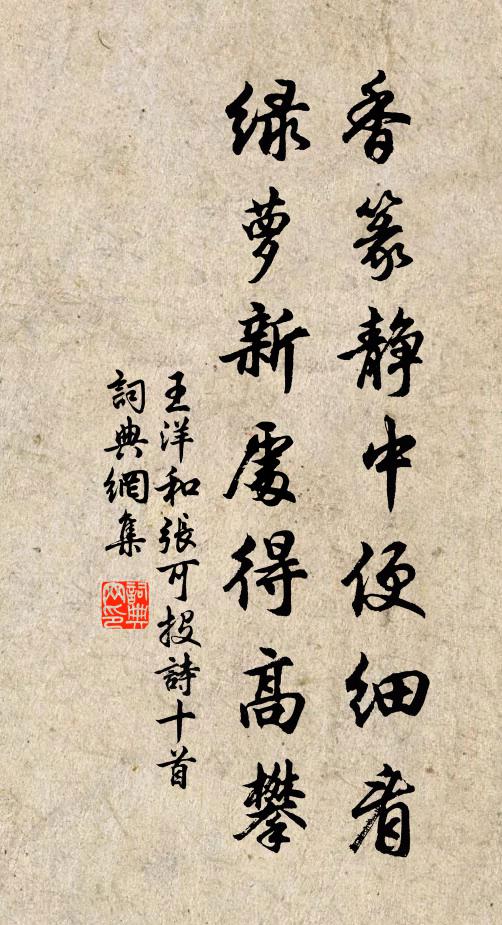 香篆静中便细看
绿萝新处得高攀
王洋和張可投詩十首
詞典網集
詞典網印